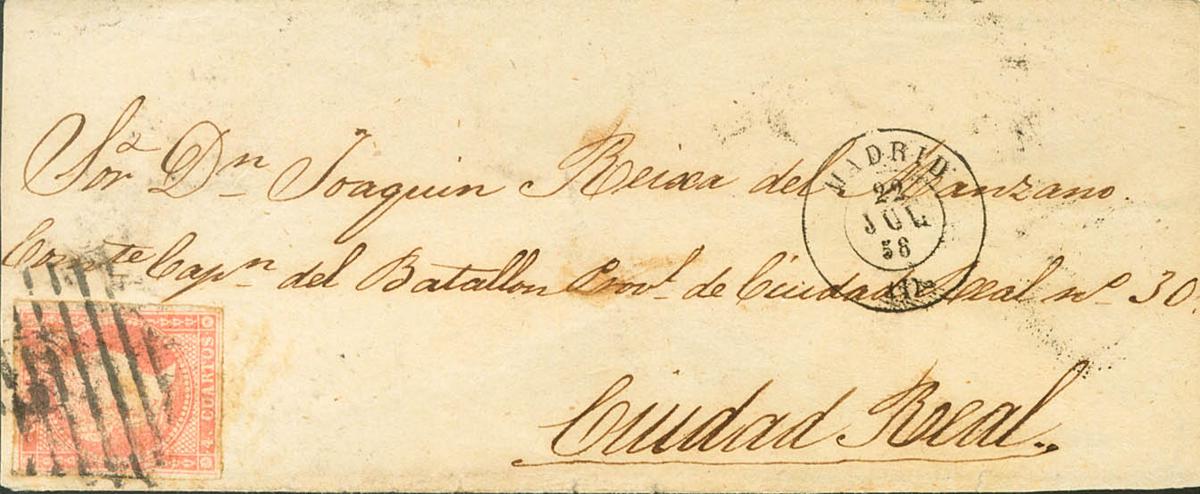 Sor. Dn. Joaquin Reixa del Manzano.
Capn. del Batallon Provl. de Ciudad Real nº 30.
Ciudad Real
MADRID
22
JUL
58
4 CUARTOS